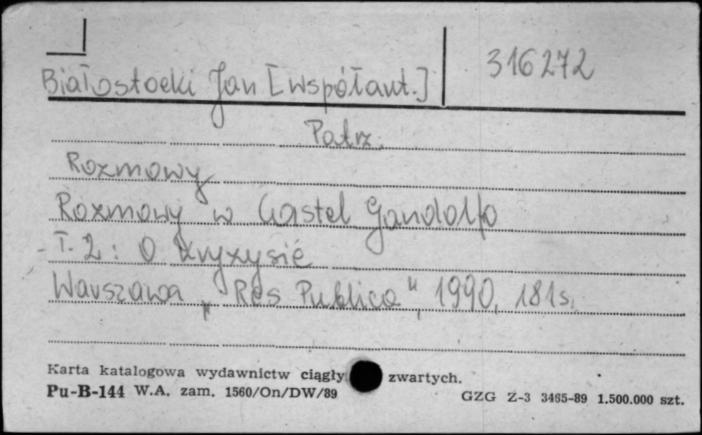 Białostocki Jan [współaut.]
316272
Patrz.
Rozmowy
Rozmowy w Castel Gandolfo
T. 2: O kryzysie
Warszawa „Res Publica", 1990, 181s.
Karta katalogowa wydawnictw ciągły zwartych.
Pu-B-144 W.A. zam. 1560/On/DW/89
GZG Z-3 3465-89 1.500.000 szt.